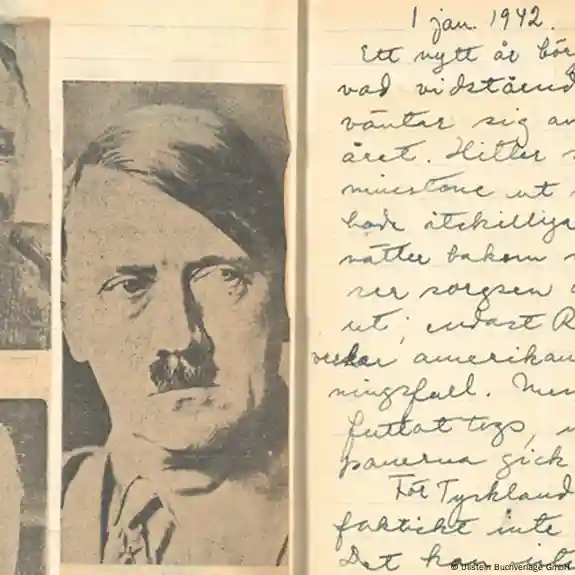 1 jan. 1942.
Ett nytt år bör
vad vidståend
väntar sig av
året. Hitler s
minstone ut
hade åtskilliga
nätter bakom
ser sorgsen
ut; endast R
verkar amerikan
ningsfull. Men
futtat togs,
panerna gick
För Tyskland
faktiskt inte
Det kan
© Ullstein Buchverlage GmbH